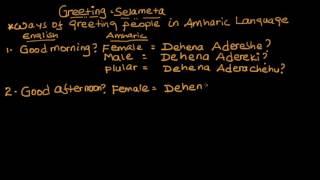 Greeting - Selameta
*Ways of greeting people in Amharic Language
English Amharic
1. Good morning? Female = Dehena Adereshe?
Male = Dehena Adereki?
Plular = Dehena Aderachehu?
2. Good afternoon? Female = Dehen